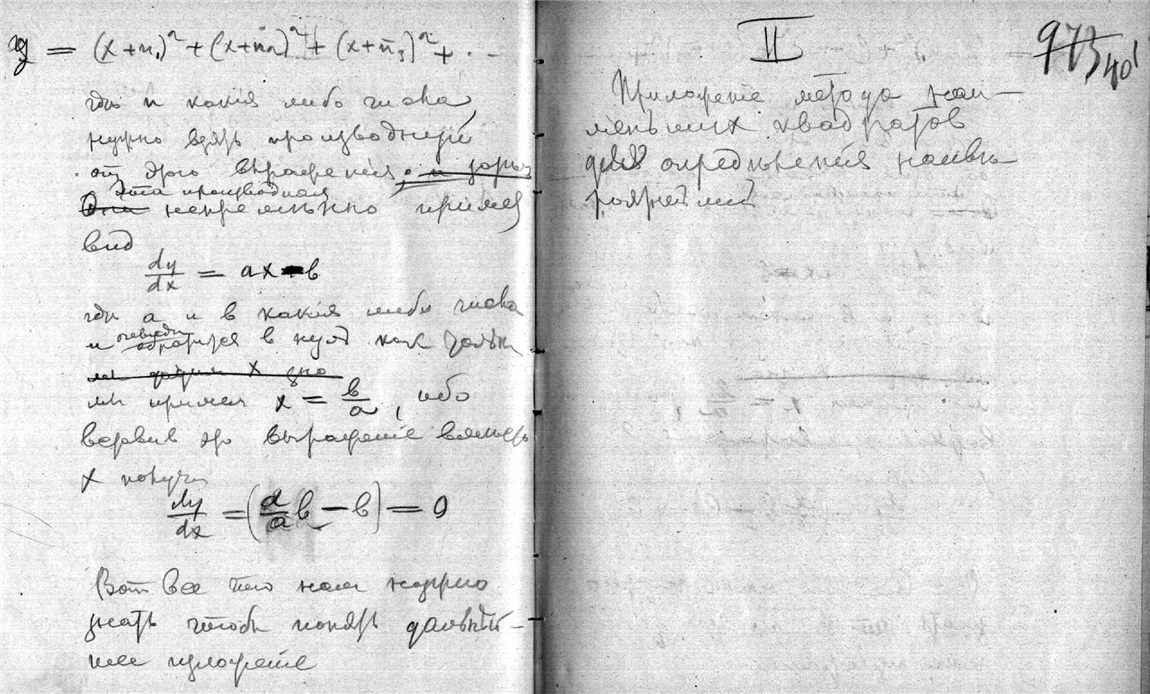 y = (x+n₁)² + (x+n₂)² + (x+n₃)² + . -
гдѣ n какія либо числа
нужно взять производную
отъ этого выраженія
Эта производная
Она непремѣнно приметъ
видъ
dy/dx = ax - b
гдѣ a и b какія либо числа
и обратится в нуль как только
мы примем x = b/a, ибо
вставив это выражение вместо
x получим
dy/dx = (a/a b - b) = 0
Вот все что нам нужно
знать чтобы понять дальнѣй-
шее изложеніе
II
973
40¹
Приложеніе метода наи-
меньших квадратов
для определѣнія наивѣ-
роятнейшей